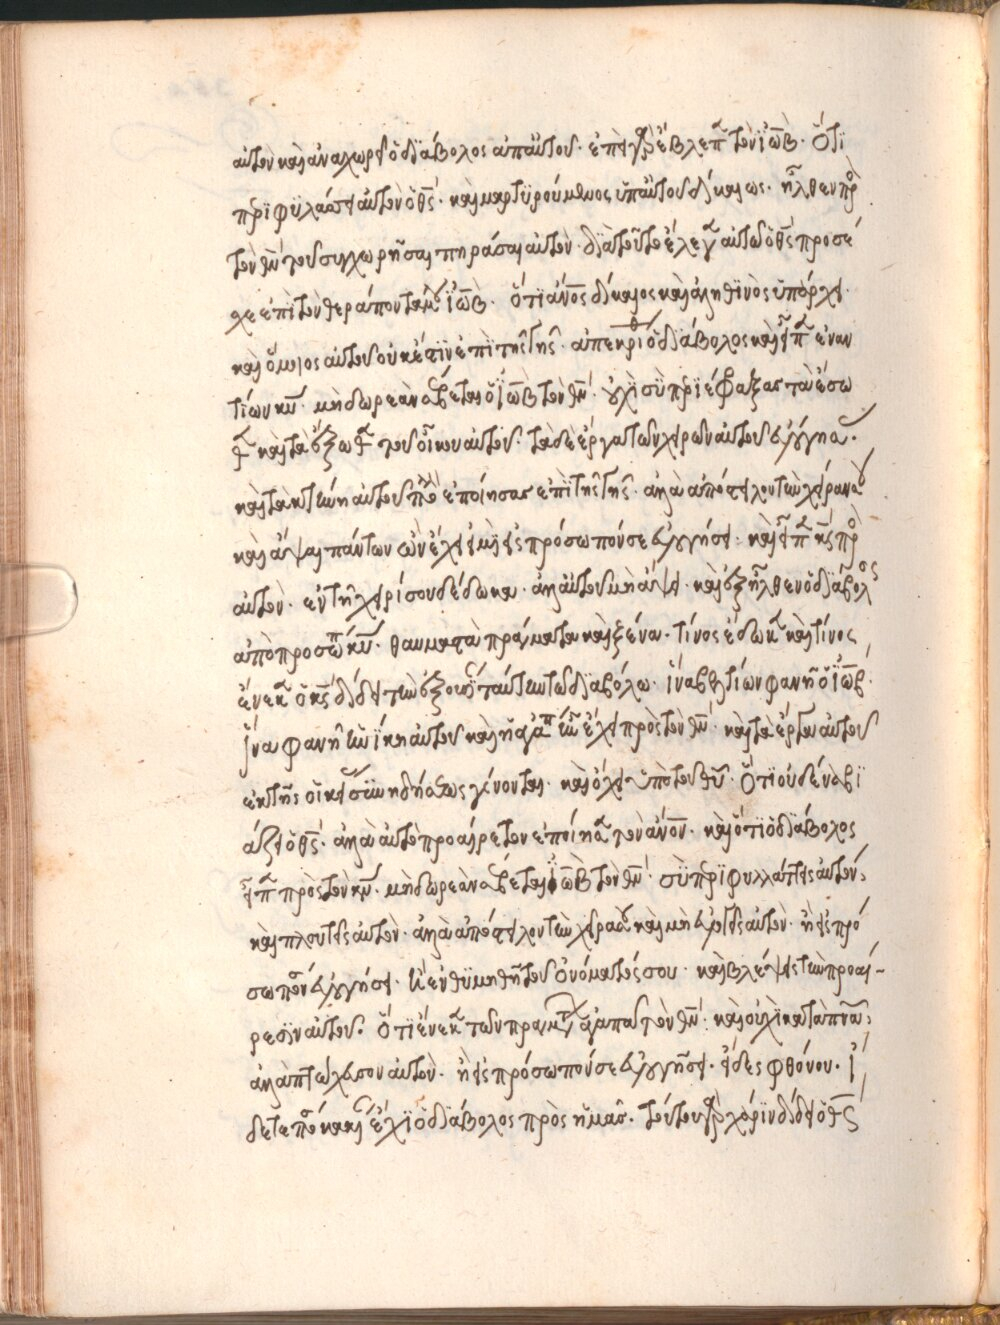 αὐτὸν καὶ ἀναχωρεῖ ὁ διάβολος ἀπαὐτοῦ· ἐπεὶ γὰρ ἔβλεπε τὸν ἰὼβ· ὅτι
περιφυλάσσει αὐτὸν ὁ θς· καὶ μαρτυρούμενος ὑπαὐτοῦ δίκαιως· ἦλθεν πρὸς
τὸν θν τοῦ συγχωρῆσαι πηράσαι αὐτὸν· διὰ τοῦτο ἔλεγεν αὐτῶ ὁ θς προσέ
χε ἐπὶ τὸν θεράποντα μου ἰὼβ· ὅτι ἀνος δίκαιος καὶ ἀληθινὸς ὑπάρχει·
καὶ ὅμοιος αὐτοῦ οὐκ έστιν ἐπὶ τῆς γῆς· ἀπεκρίθη ὁ διάβολος καὶ εἶπεν ἐναν
τίων κυ· μὴ δωρεὰν σέβεται ὁ ἰὼβ τὸν θν· οὐχὶ σὺ περιέφραξας τὰ ἔσω
καὶ τὰ ἔξω τοῦ οἴκου αὐτοῦ· τὰ δὲ ἔργα τῶν χειρῶν αὐτοῦ εὐλόγησας·
καὶ τὰ κτήνη αὐτοῦ πολλὰ ἐποίησας ἐπὶ τῆς γῆς· ἀλλὰ ἀπόστειλον τὴν χεῖρα σου
καὶ ἅψαι πάντων ὧν ἔχει εἰ μὴ εἰς πρόσωπόν σε εὐλογήσει· καὶ εἶπεν κς πρὸς
αὐτὸν· ἐν τῆ χειρί σου δέδωκα· ἀλλ αὐτοῦ μὴ ἅψει· καὶ ἐξῆλθεν ὁ διάβολος
ἀπὸ προσώπου κυ· θαυμαστὰ πράγματα καὶ ξένα· τίνος ἔδωκε καὶ τίνος
ἕνεκεν ὁ κς δίδει τὴν ἐξουσίαν ταύτην τῶ διαβόλω· ἵνα βελτίων φανῆ ὁ ἰὼβ·
ἵνα φανῆ ἡ νίκη αὐτοῦ καὶ ἡ ἀγάπη ἣν ἔχει πρὸς τὸν θν· καὶ τὰ ἔργα αὐτοῦ
ἐκ τῆς οἰκείας ἡδήσεως γένονται· καὶ ὄχι ὑπὸ τοῦ θυ· ὅτι οὐδένα βι
άζει ὁ θς· ἀλλὰ αὐτοπροαίρετον ἐποίησε τὸν ἀνον· καὶ ὅτι ὁ διάβολος
εἶπε πρὸς τὸν κν· μὴ δωρεὰν σέβεται ἰὼβ τὸν θν· σὺ περιφυλλάττεις αὐτόν·
καὶ πλουτεῖς αὐτὸν· ἀλλὰ ἀπόστειλον τὴν χεῖρα σου καὶ μὴ εὐεργετεῖς αὐτὸν· ἢ εἰς πρό
σωπόν σε εὐλογήσει· ἢ ἐνθυμηθῆ τοῦ ὀνόματός σου· καὶ βλέπεις τὴν προαί-
ρεσιν αὐτοῦ· ὅτι ἕνεκεν τῶν πραγμάτων ἀγαπᾶ τὸν θν· καὶ οὐχὶ κατὰ πνα·
ἀλλὰ πτώχευσον αὐτὸν· ἢ εἰς πρόσωπόν σε εὐλογήσει· εἶδες φθόνον· ἴ
δετε πόσην κακίαν ἔχει ὁ διάβολος πρὸς ἡμᾶς· τούτου γὰρ χάριν δίδει ὁ θς